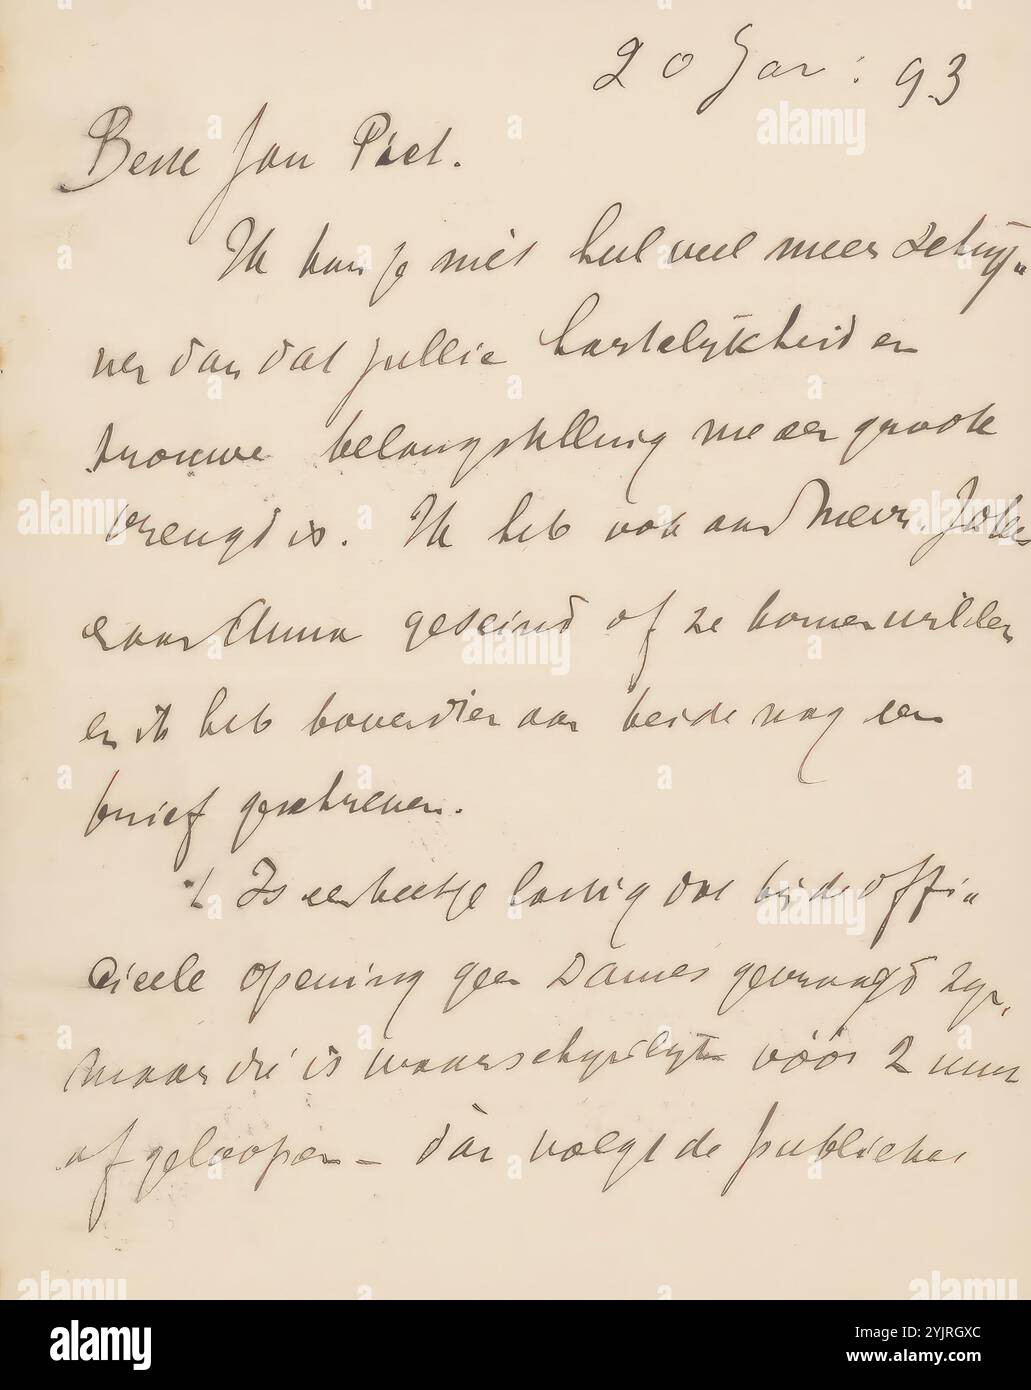 20 Jan: 93
Beste Jan Piet.
Ik kan je niet heel veel meer schrij„
ven dan dat jullie hartelijkheid en
trouwe belangstelling me een groote
vreugd is. Ik heb ook aan Mevr.
en aan Anna geseind of ze komen wilden
en ik heb bovendien aan beide nog een
brief geschreven.
't Is een beetje lastig dat bij de offi„
cieele opening geen Dames gevraagd zijn,
maar die is waarschijnlijk vóór 2 uur
afgeloopen – dan volgt de publieke
alamy
Image ID: 2YJRGXC
www.alamy.com